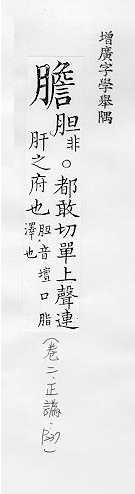 增廣字學舉隅
膽
胆非。都敢切單上聲連
肝之府也胆音壇口脂
澤也
(卷二.正譌.)